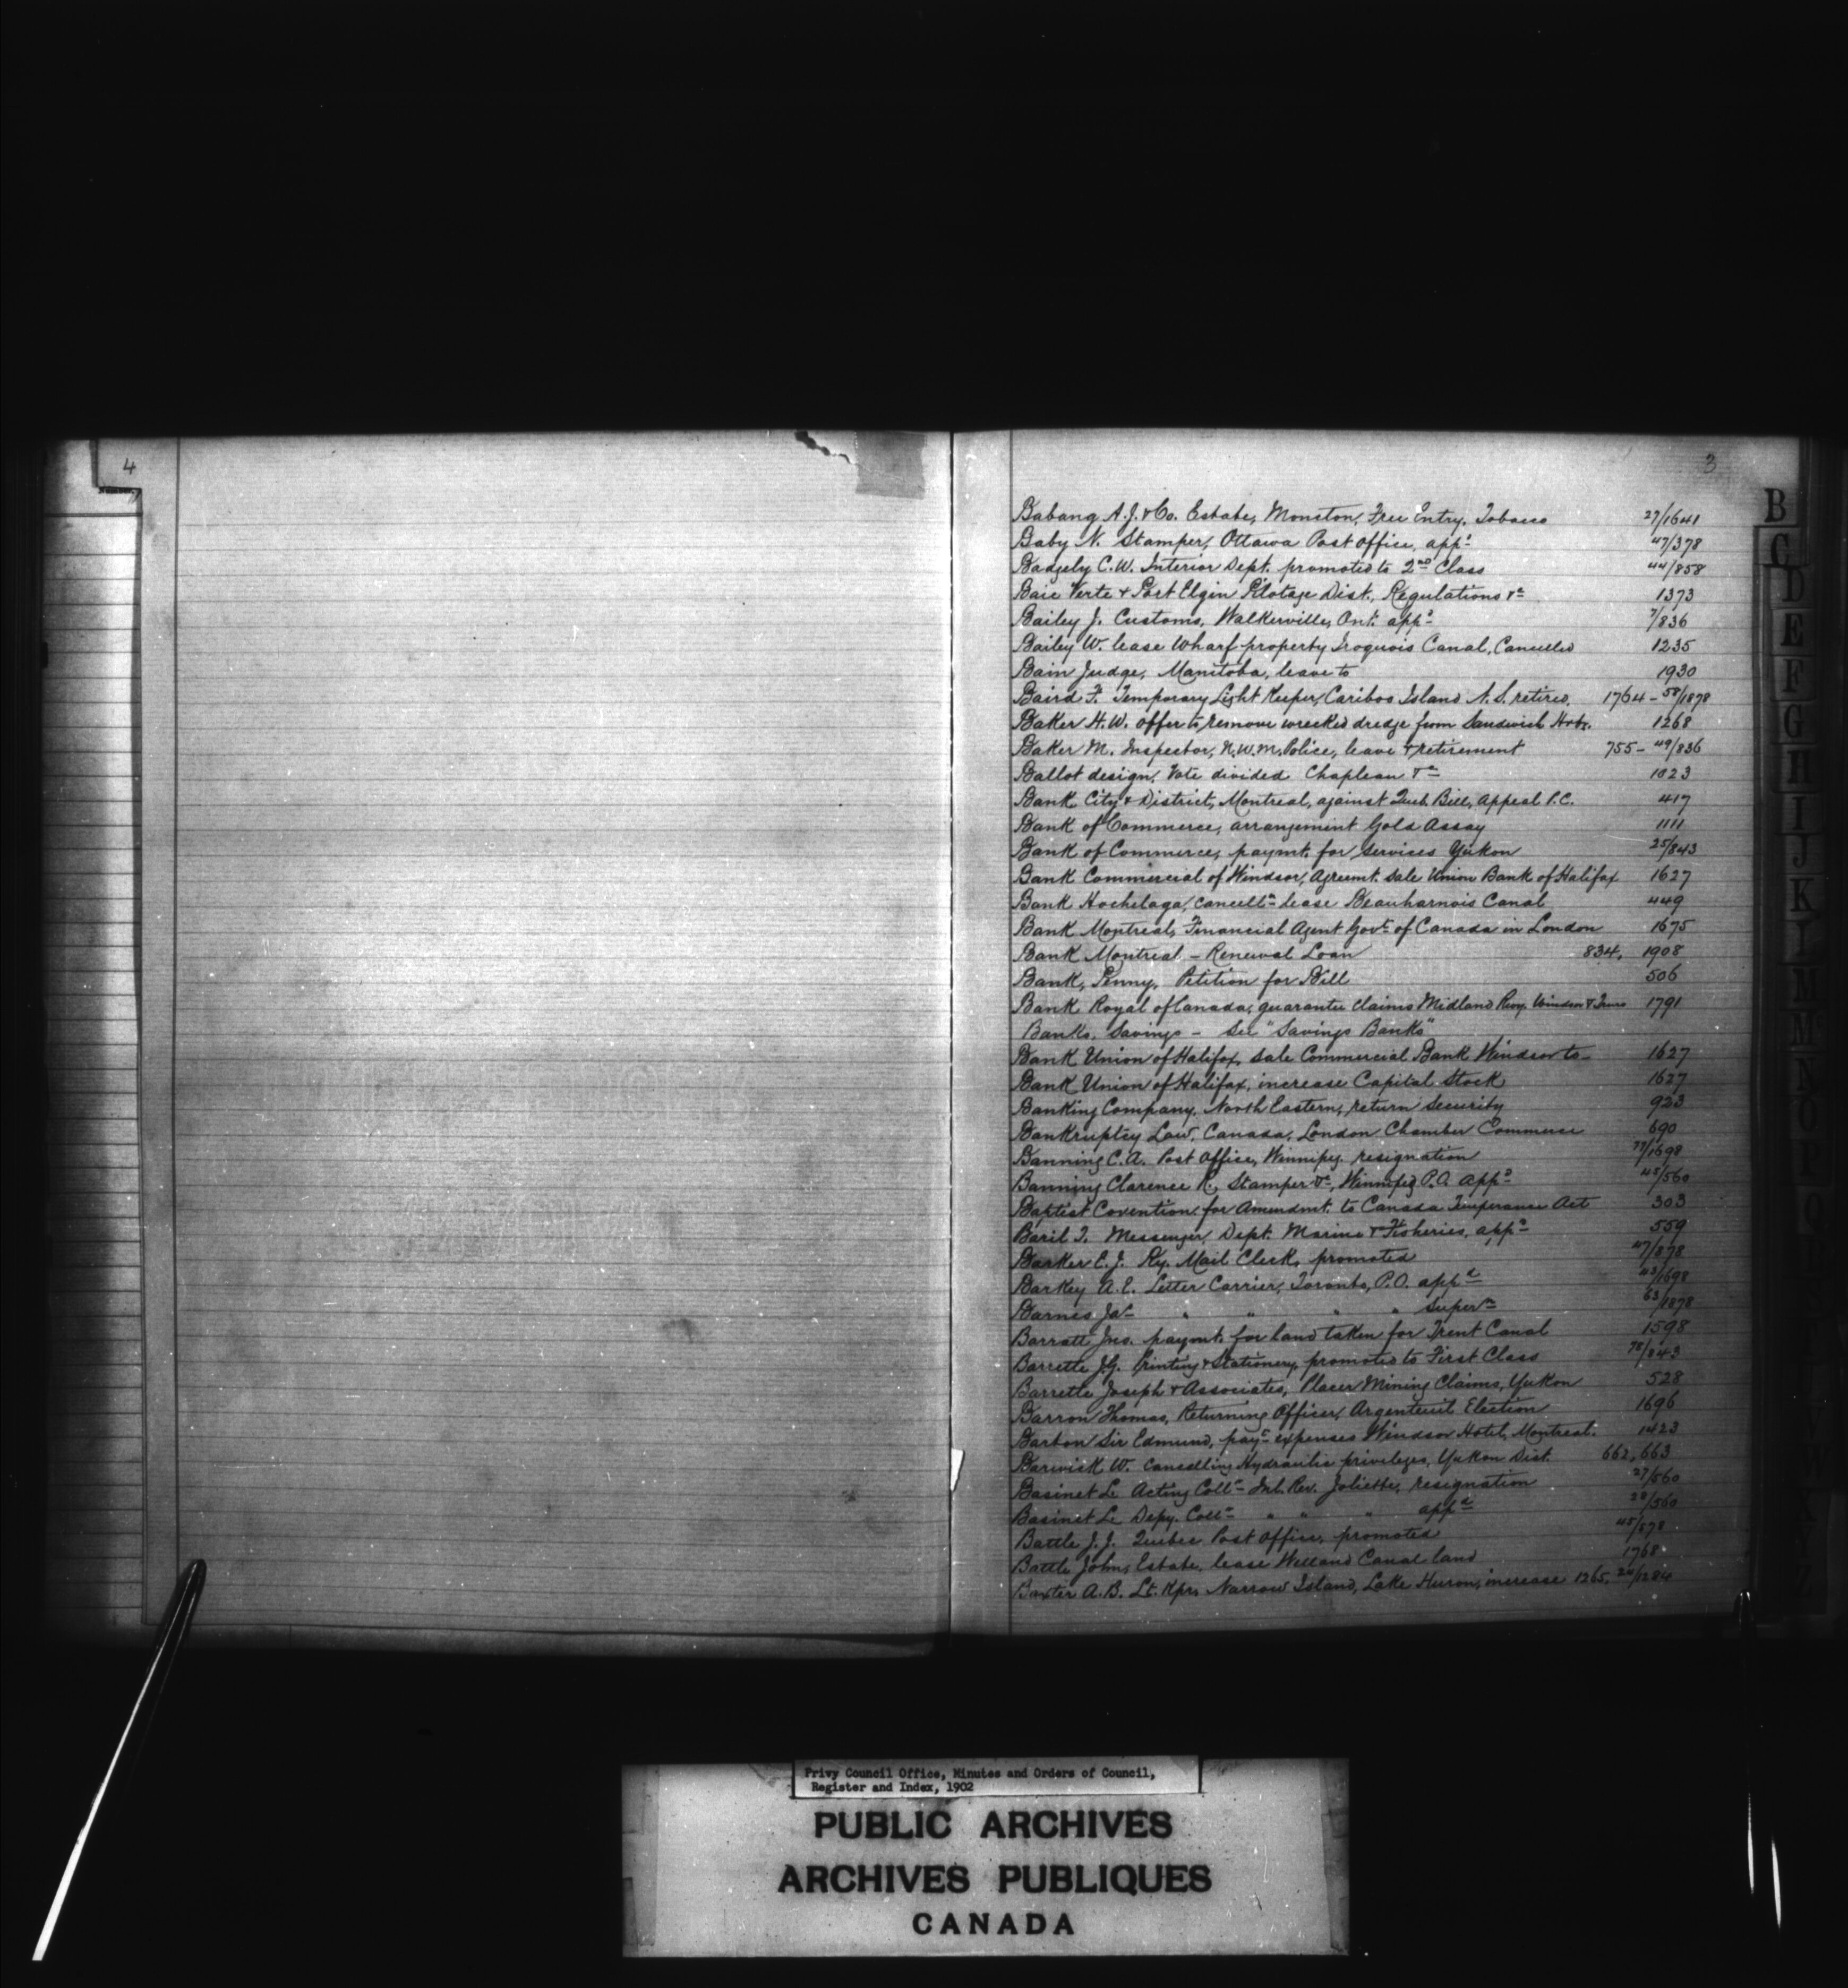 4
3
Babang A.J. & Co. Estate, Moncton, Free Entry, Tobacco 27/1641
Baby N. Stamper, Ottawa Post Office, appt 47/378
Badgely C.W. Interior Dept. promoted to 2nd Class 44/858
Baie Verte & Port Elgin Pilotage Dist., Regulations &c 1373
Bailey J. Customs, Walkerville, Ont. appt 7/836
Bailey W. lease Wharf property Iroquois Canal, Cancelled 1235
Bain Judge, Manitoba, leave to 1930
Baird F. Temporary Light Keeper, Caribou Island N.S. retired, 1764 - 58/1878
Baker H.W. offer to remove wrecked dredge from Sandwich Hrbr. 1268
Baker M. Inspector, N.W.M. Police, leave & retirement 755 - 49/836
Ballot design, Vote divided Chapleau &c 1023
Bank City & District, Montreal, against Queb. Bill, Appeal P.C. 417
Bank of Commerce, arrangement Gold Assay 1111
Bank of Commerce, paymt. for services Yukon 25/843
Bank Commercial of Windsor, Agreemt. sale Union Bank of Halifax 1627
Bank Hochelaga, cancelln lease Beauharnois Canal 449
Bank Montreal, Financial Agent Govt of Canada in London 1675
Bank Montreal - Renewal Loan 834, 1908
Bank, Penny, Petition for Bill 506
Bank Royal of Canada, guarantee claims Midland Rwy. Windsor & Truro 1791
Banks, Savings - See "Savings Banks"
Bank Union of Halifax, sale Commercial Bank Windsor to - 1627
Bank Union of Halifax, increase Capital Stock 1627
Banking Company, North Eastern, return Security 923
Bankruptcy Law, Canada, London Chamber Commerce 690
Banning C.A. Post Office, Winnipeg, resignation 79/1698
Banning Clarence R., Stamper &c, Winnipeg P.O. appt 45/560
Baptist Covention for Amendmt. to Canada Temperance Act 303
Baril T. Messenger, Dept. Marine & Fisheries, appt 559
Barker E.J. Ry. Mail Clerk, promoted 47/878
Barkey A.E. Letter Carrier, Toronto, P.O. appd 43/1698
Barnes Jas " " " " Supern 63/1878
Barratt Jno. paymt. for land taken for Trent Canal 1598
Barrette J.G. Printing & Stationery, promoted to First Class 78/843
Barrette Joseph & Associates, Placer Mining Claims, Yukon 528
Barron Thomas, Returning Officer, Argenteuil Election 1696
Barton Sir Edmund, payt expenses Windsor Hotel, Montreal. 1423
Barwick W. Cancelling Hydraulic privileges, Yukon Dist. 662, 663
Basinet L. Acting Collr Inl. Rev. Joliette, resignation 27/560
Basinet L. Depy. Collr " " " appd 28/560
Battle J.J. Quebec Post Office, promoted 45/878
Battle John, Estate, lease Welland Canal land 1768
Baxter A.B. Lt. Kpr. Narrow Island, Lake Huron, increase 1265, 24/1284
B
C
D
E
F
G
H
I
J
K
L
M
Privy Council Office, Minutes and Orders of Council,
Register and Index, 1902
PUBLIC ARCHIVES
ARCHIVES PUBLIQUES
CANADA